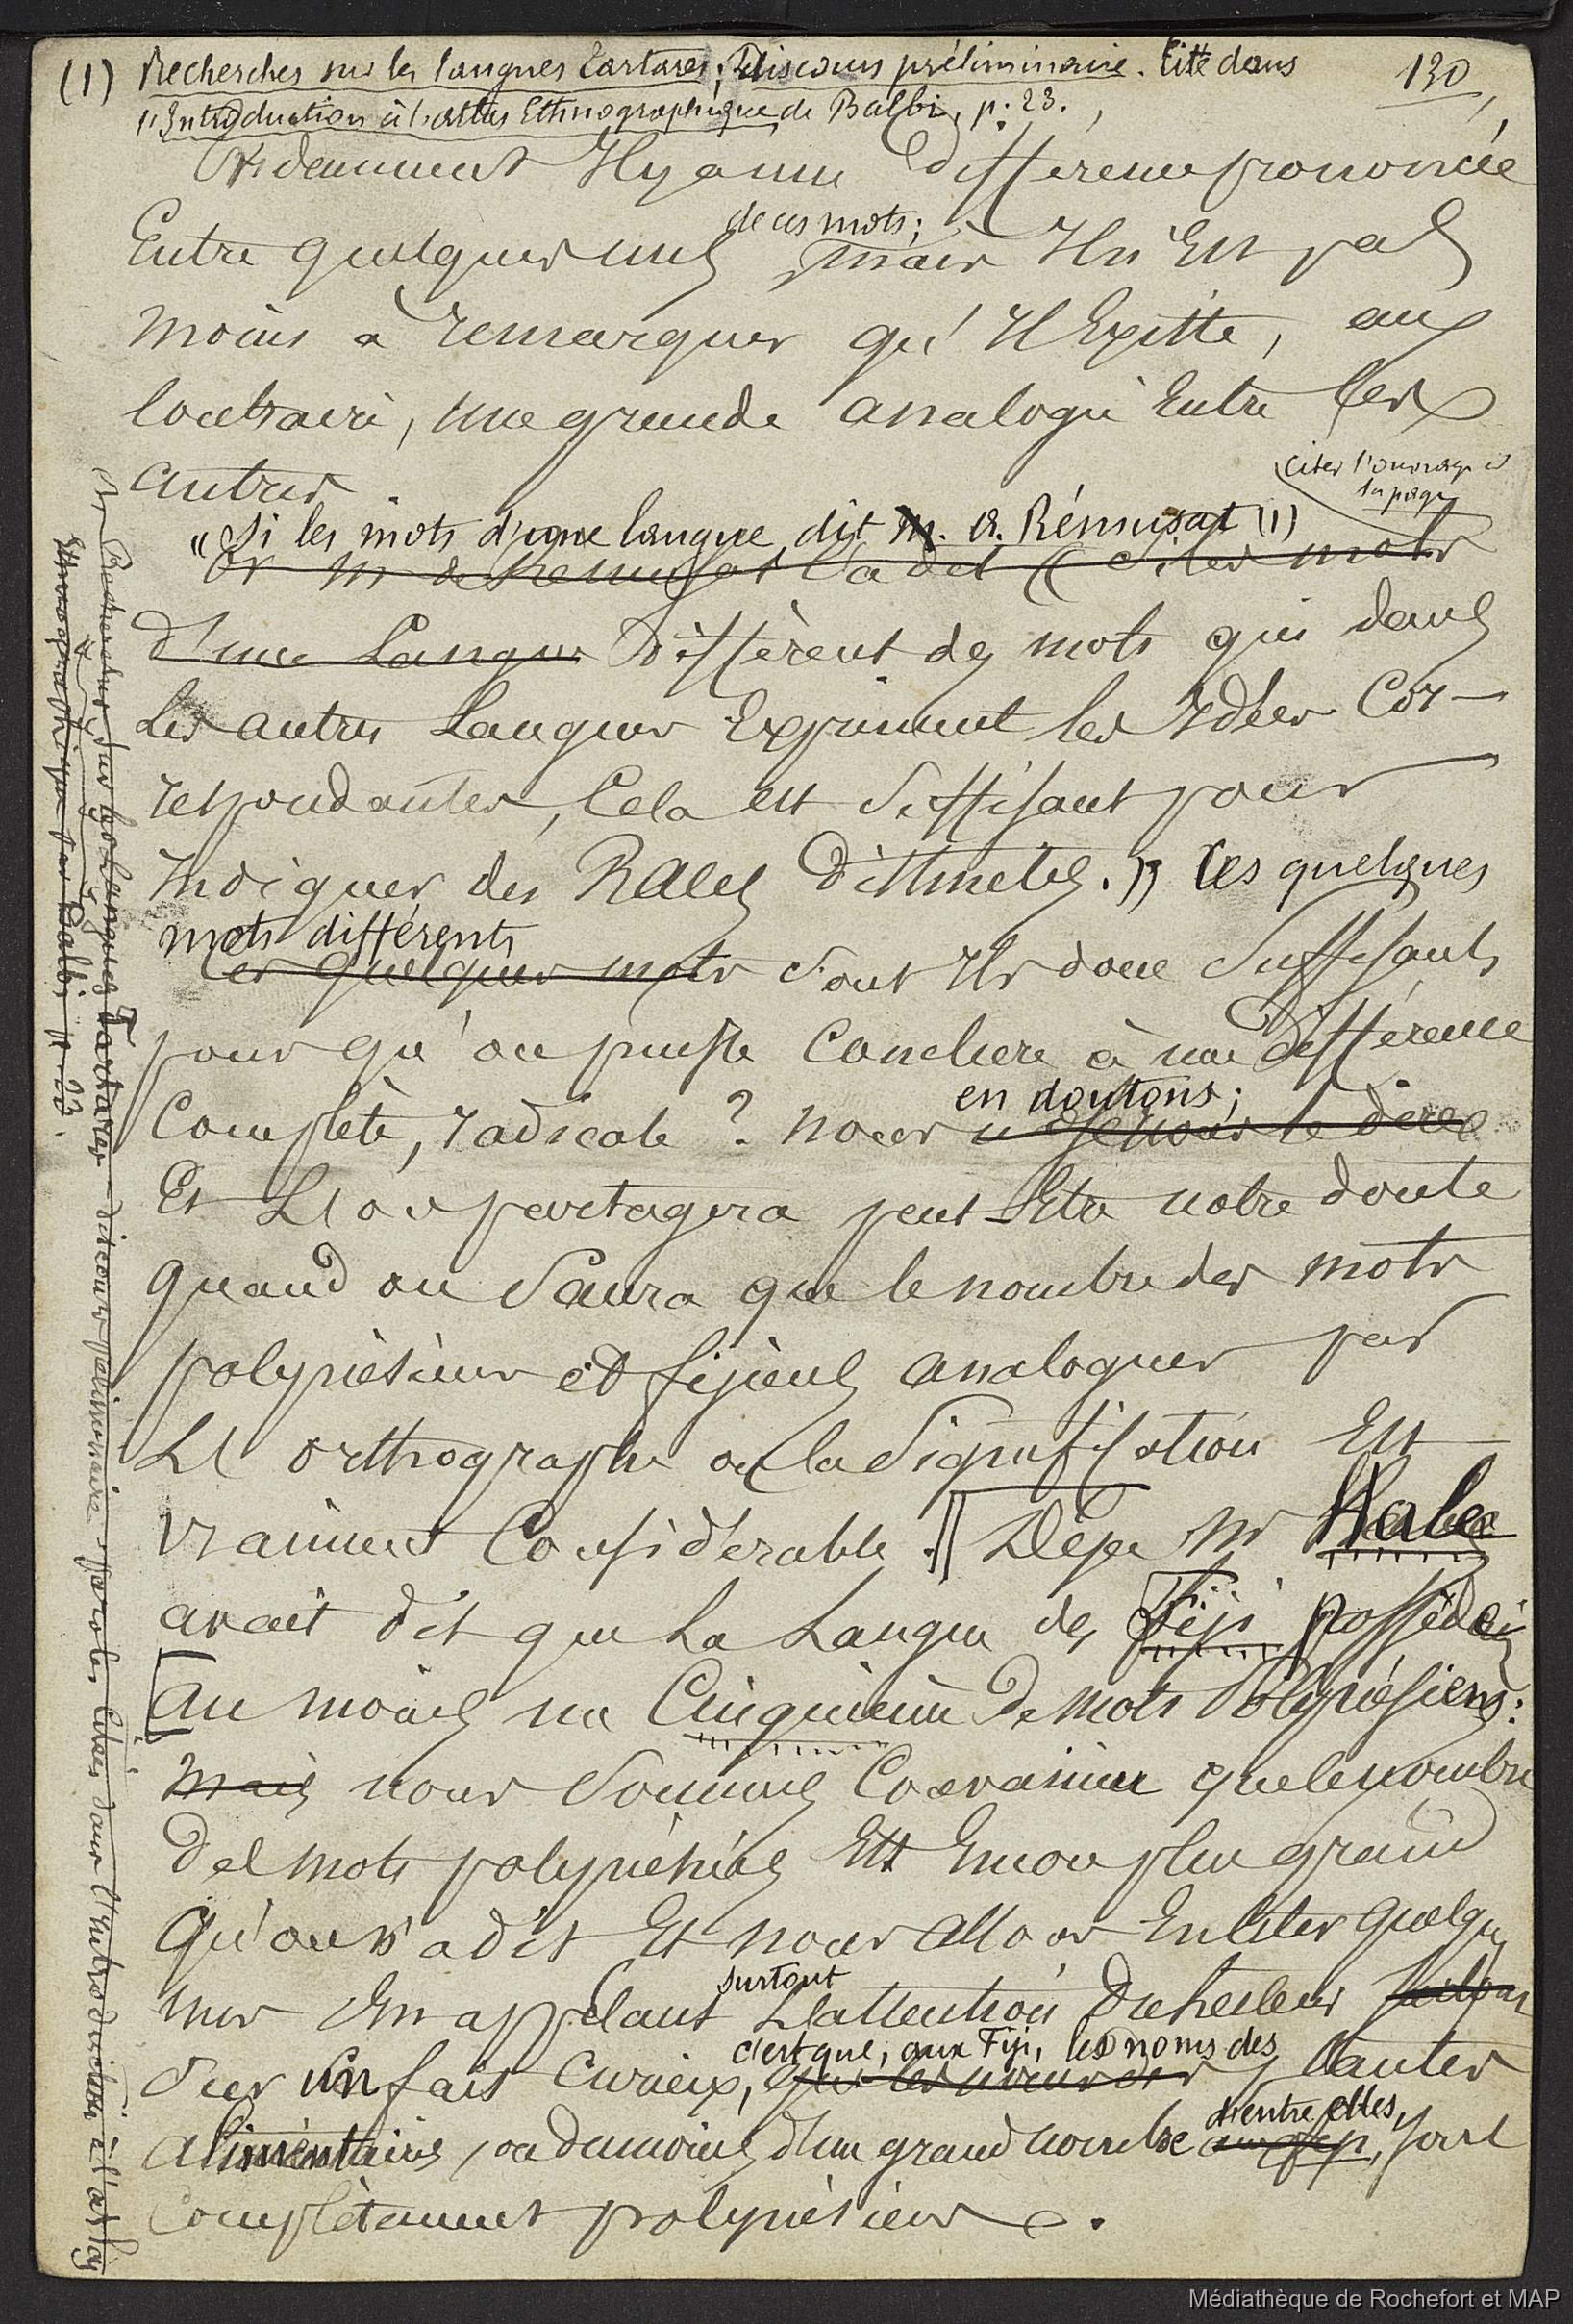 (1) Recherches sur les langues Tartares; Discours préliminaire. Cité dans
l'Introduction à l'atlas Ethnographique de Balbi, p. 23.
130
Evidemment Il y a une différence prononcée
Entre quelques uns de ces mots; mais Il n'Est pas
moins à remarquer qu'Il Existe, au
Contraire, une grande analogie Entre les
autres
citer l'ouvrage et
la page
"Si les mots d'une langue, dit M. A. Rémusat (1)
Or M de Remusat l'a dit « Si les mots
d'une Langue diffèrent des mots qui dans
les autres Langues Expriment les Idées Cor-
respondantes, Cela est Suffisant pour
Indiquer des Races distinctes. » Ces quelques
mots différents
Ces quelques mots Sont Ils donc Suffisants
pour qu'on puisse Conclure à une différence
en doutons;
Complète, radicale ? nous
Et L'on partagera peut Etre notre doute
quand on Saura que le nombre des mots
polynésiens et fijiens analogues par
L'orthographe ou la Signification Est
vraiment Considérable. Déja Mr Hale
avait dit que La Langue des Fiji possédait
au moins un Cinquième De mots Polynésiens:
Mais nous Sommes Convaincu que le nombre
des mots polynésiens Est Encore plus grand
qu'on n'a dit Et nous allons En Citer quelques
surtout
uns En appelant L'attention du lecteur
c'est que, aux Fiji, les noms des
Sur un fait Curieux, que les noms des plantes
d'entre elles,
alimentaires, ou du moins d'un grand nombre aux fiji, sont
Complètement polynésiens.
Recherches sur les Langues Tartares - discours préliminaire - paroles Citées dans l'Introduction à l'atlas
Ethnographique par Balbi p. 23.
Médiathèque de Rochefort et MAP